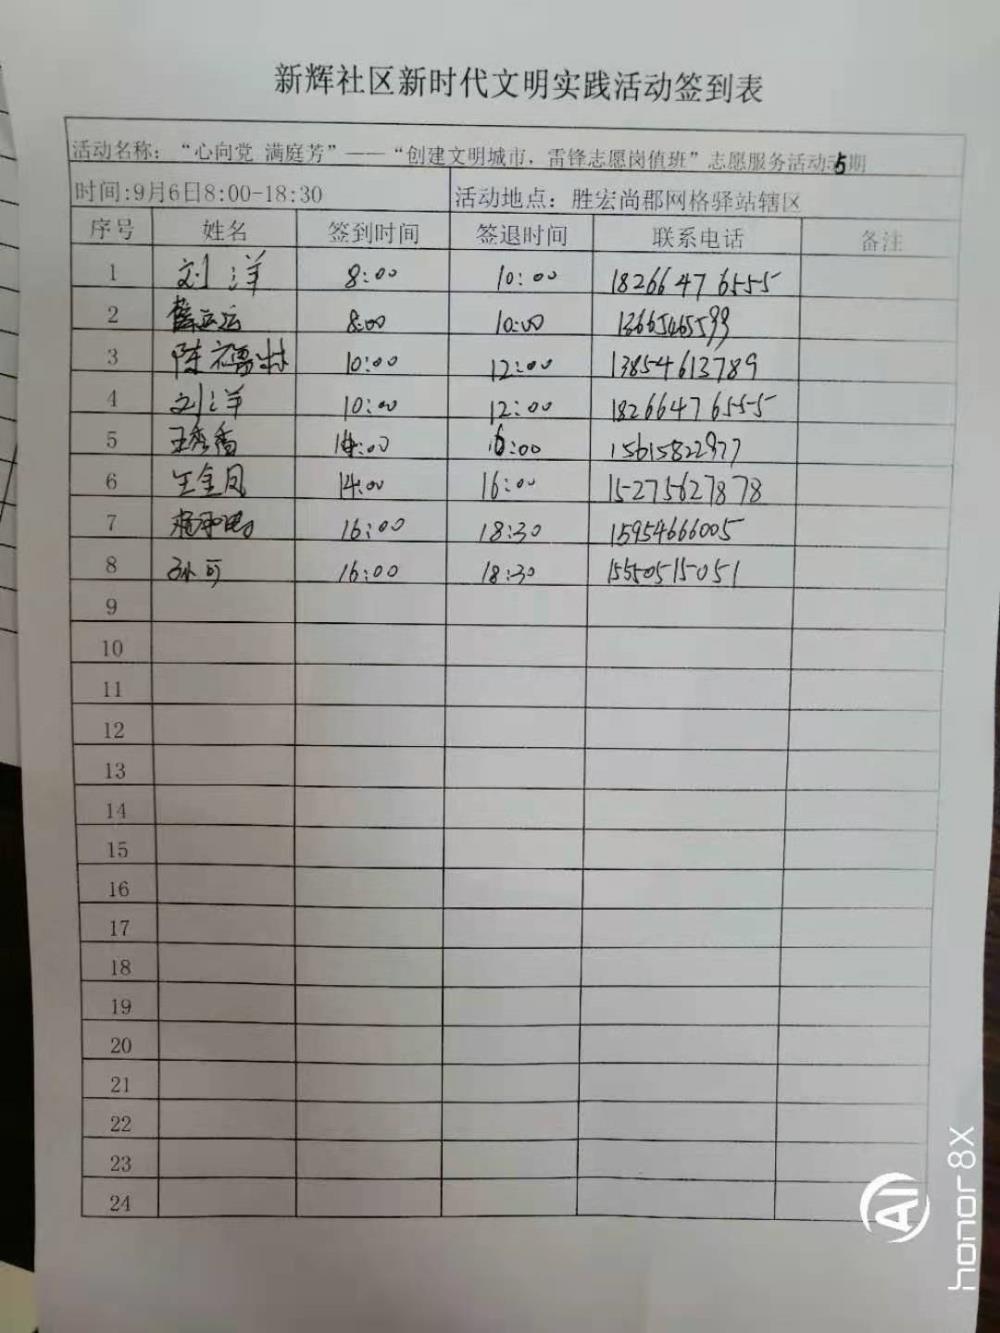 新辉社区新时代文明实践活动签到表
活动名称：“心向党 满庭芳”——“创建文明城市，雷锋志愿岗值班”志愿服务活动5期
时间:9月6日8:00-18:30 活动地点：胜宏尚郡网格驿站辖区
序号 姓名 签到时间 签退时间 联系电话 备注
1 刘洋 8:00 10:00 18266476555
2 薛运运 8:00 10:00 13665465599
3 陈福林 10:00 12:00 13854613789
4 刘洋 10:00 12:00 18266476555
5 王秀香 14:00 16:00 15615822977
6 王金凤 14:00 16:00 15275627878
7 16:00 18:30 15954666005
8 孙可 16:00 18:30 15550515051
9
10
11
12
13
14
15
16
17
18
19
20
21
22
23
24
AI
honor 8X